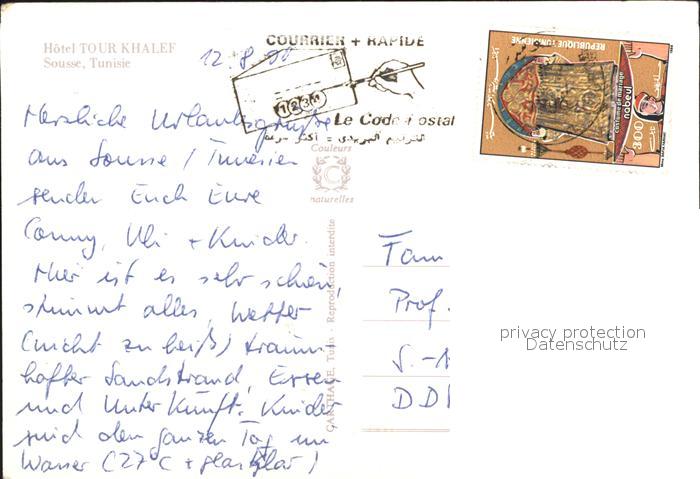 Hôtel TOUR KHALEF
Sousse, Tunisie
12.8.90
COURRIER + RAPIDE
Le Code Postal
الترقيم البريدي = أكثر سرعة
REPUBLIQUE TUNISIENNE
costume de mariage
nabeul
300
Herzliche Urlaubsgrüße
aus Sousse / Tunesien
senden Euch Eure
Conny, Uli + Kinder.
Hier ist es sehr schön,
stimmt alles, Wetter
(nicht zu heiß) traum-
hafter Sandstrand, Essen
und Unterkunft. Kinder
sind den ganzen Tag im
Wasser (27°C + glasklar)
Couleurs
C
naturelles
CARTHAGE, Tunis - Reproduction interdite
Fam
Prof.
S.-
DD
privacy protection
Datenschutz